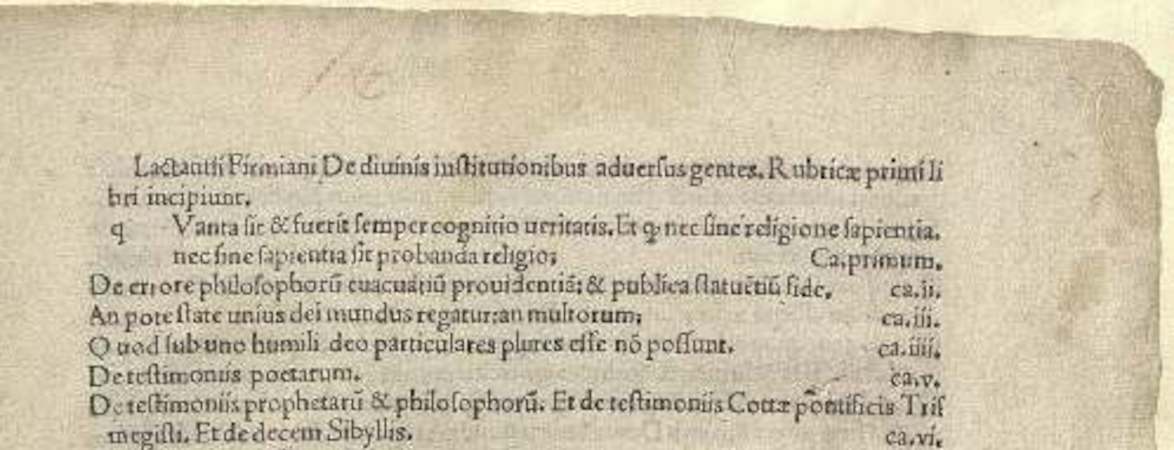 Lactantii Firmiani De diuinis institutionibus aduersus gentes. Rubricæ primi li
bri incipiunt.
q Vanta sit & fuerit semper cognitio ueritatis. Et ꝙ nec sine religione sapientia.
nec sine sapientia sit probanda religio; Ca.primum.
De errore philosophorũ euacuãtiũ prouidentiã: & publica statuẽtiũ fide. ca.ii.
An potestate unius dei mundus regatur: an multorum; ca.iii.
Quod sub uno humili deo particulares plures esse nõ possunt. ca.iiii.
De testimoniis poetarum. ca.v.
De testimoniis prophetarũ & philosophorũ. Et de testimoniis Cottæ põntificis Tris
megisti. Et de decem Sibyllis. ca.vi.